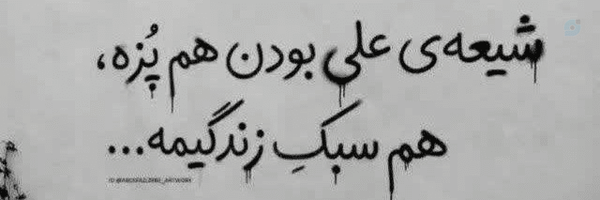 شیعه‌ی علی بودن هم پُزه،
هم سبکِ زندگیمه...